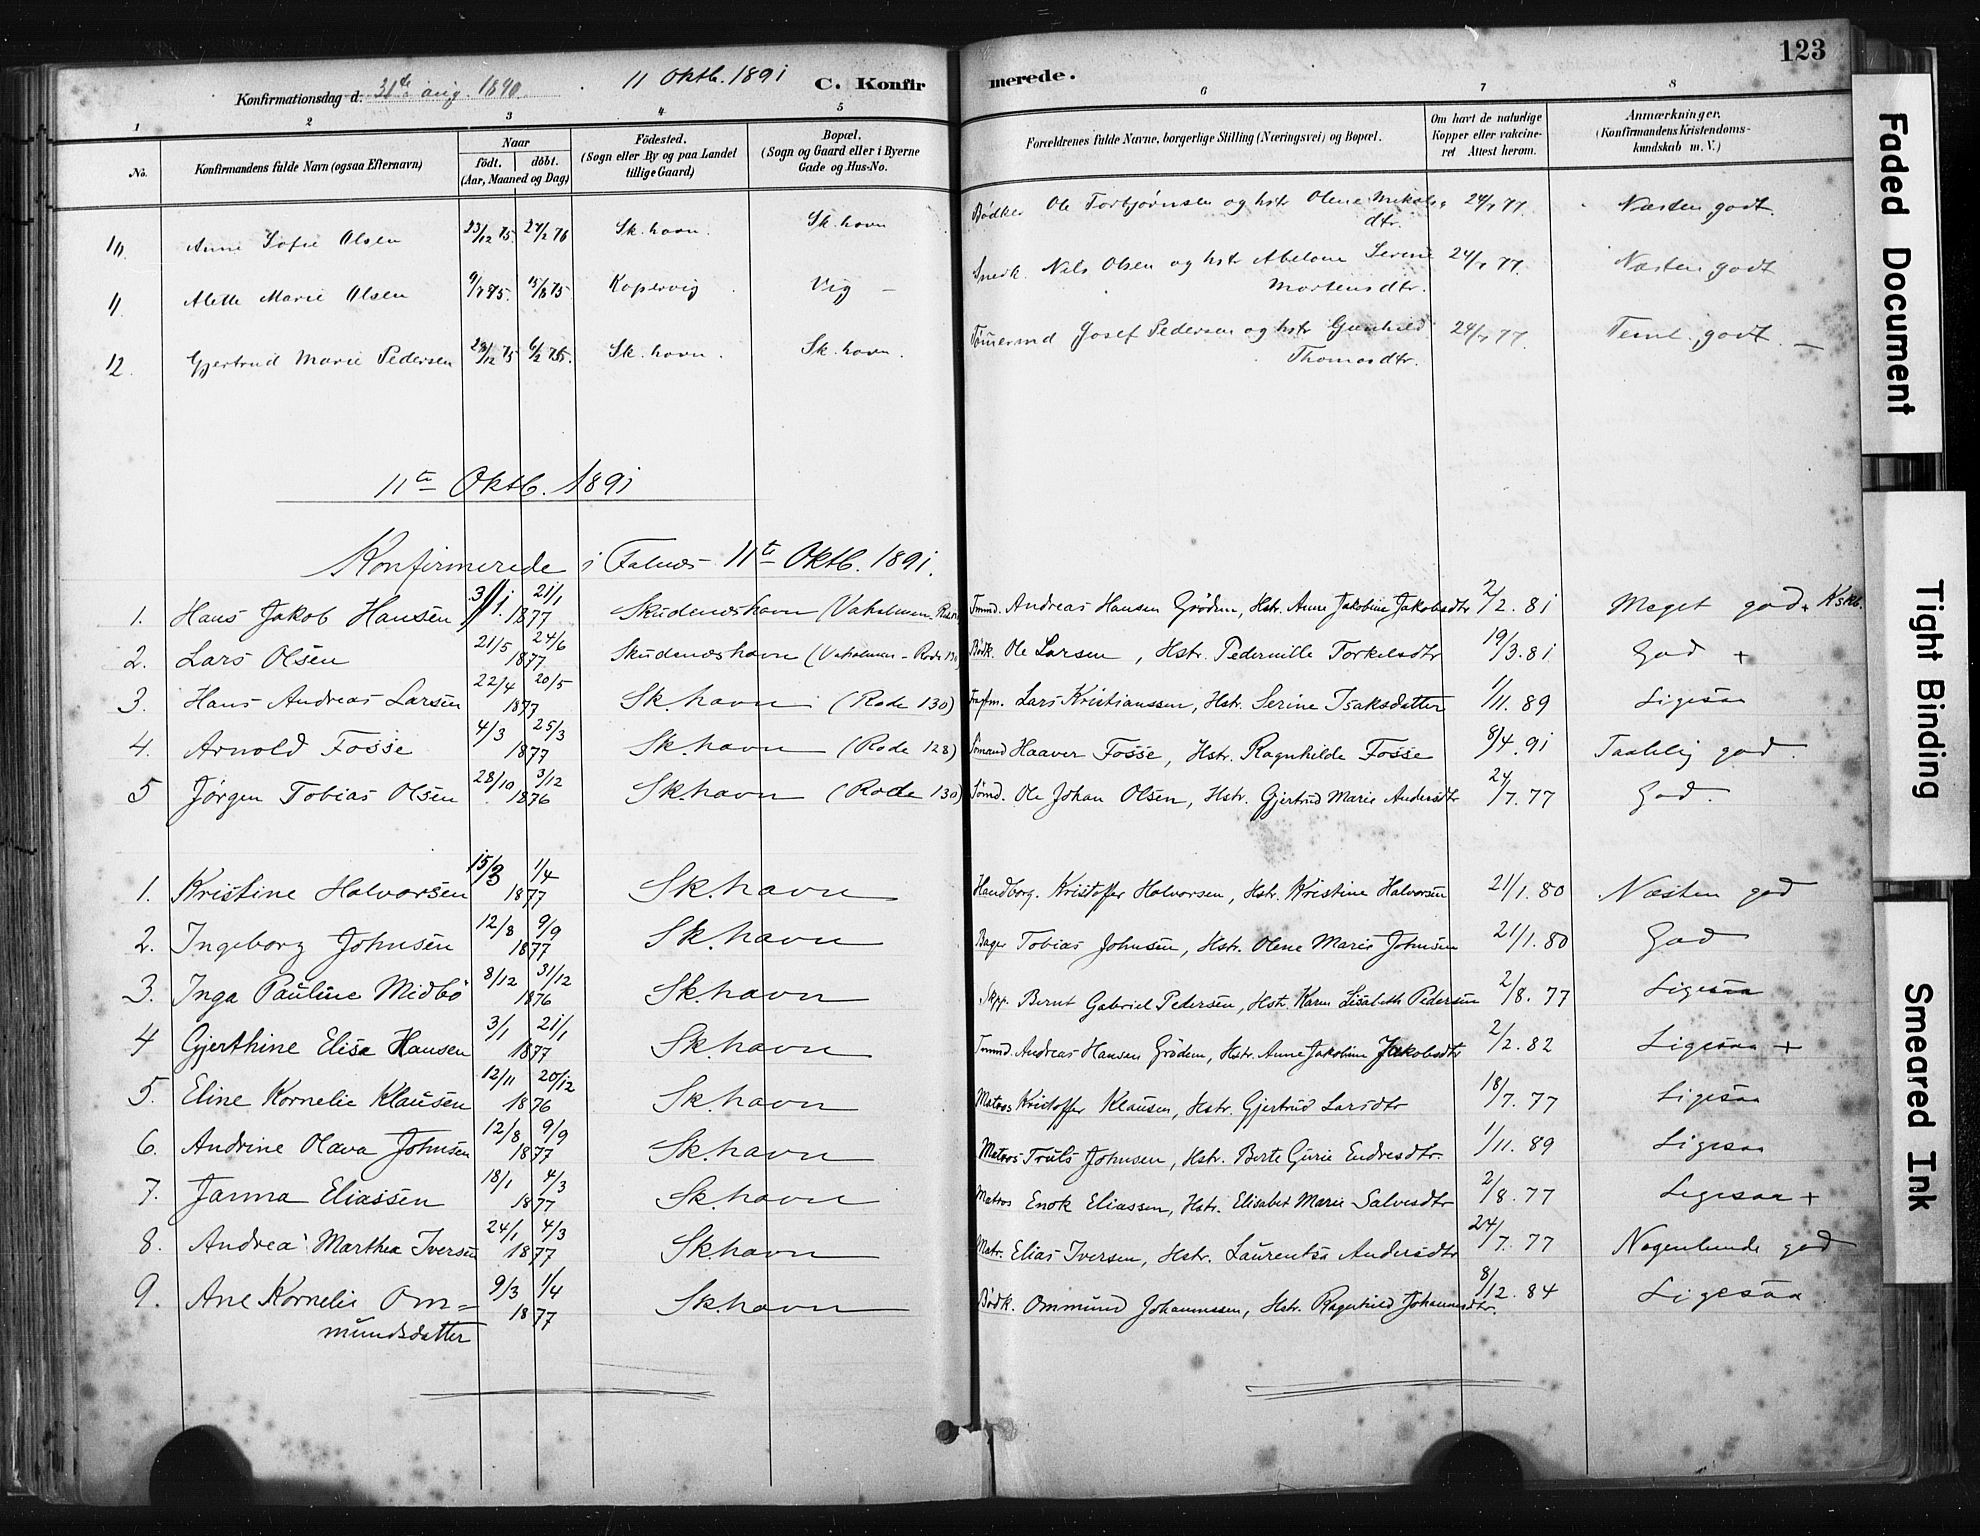 123
Konfirmationsdag d. 31te aug. 1890. 11 Oktb. 1891 C. Konfirmerede.
1 2 3 4 5 6 7 8
No.
Konfirmandens fulde Navn (ogsaa Efternavn)
Naar
födt. döbt.
(Aar, Maaned og Dag)
Födested.
(Sogn eller By og paa Landet
tillige Gaard)
Bopæl.
(Sogn og Gaard eller i Byerne
Gade og Hus-No.
Forældrenes fulde Navne, borgerlige Stilling (Næringsvei) og Bopæl.
Om havt de naturlige
Kopper eller vakcine-
ret Attest herom.
Anmærkninger.
(Konfirmandens Kristendoms-
kundskab m. V.)
10 Anne Sofie Olsen 23/12 75. 27/2 76 Sk.havn. Sk.havn Bødker Ole Torbjørnsen og hstr Olene Mikals- 24/7 77. Næsten godt.
dtr.
11 Alette Marie Olsen 9/7 75. 15/8 75 Kopervig Vig Snedk. Nils Olsen og hstr Abelone Serine 24/7 77 Næsten godt
Mortensdtr.
12. Gjertrud Marie Pedersen Sk.havn. Sk.havn. Tømermd Josef Pedersen og hstr Gunhild 24/7 77 Teml. godt.
Thomasdtr.
11te Oktb. 1891
Konfirmerede i Falnes 11te Oktb. 1891.
1. Hans Jakob Hansen 3/1. 21/1 1877 Skudeneshavn (Vaholmen Tmmd. Andreas Hansen Grødem, Hstr. Anne Jakobine Jakobsdtr 2/2. 81 Meget god + Kskb.
2. Lars Olsen 21/5 24/6 1877 Skudeneshavn (Vaholmen - Rode 130 Bödk. Ole Larsen, Hstr. Pedernille Torkelsdtr 19/3. 81 God +
3. Hans Andreas Larsen 22/4 20/5 1877 Sk.havn (Rode 130) Lars Kristianssen, Hstr. Serine Isaksdatter 1/11. 89 Ligesaa
4. Arnold Fosse 4/3 25/3 1877 Sk.havn (Rode 128) Sømand Haaver Fosse, Hstr. Ragnhilde Fosse 8/4. 91 Taalelig god.
5 Jörgen Tobias Olsen 28/10 3/12 1876 Sk.havn (Rode 130) Sömd. Ole Johan Olsen, Hstr. Gjertrud Marie Andersdtr 24/7. 77 God.
1. Kristine Halvorsen 15/3 1/4 1877 Sk.havn Handborg. Kristoffer Halvorsen, Hstr. Kristine Halvorsen 21/1. 80 Næsten god
2. Ingeborg Johnsen 12/8 9/9 1877 Sk.havn Bager Tobias Johnsen, Hstr. Olene Marie Johnsen 21/1. 80 God
3. Inga Pauline Midbö 8/12 31/12 1876 Sk.havn Skpp. Bernt Gabriel Pedersen, Hstr. Karen Lisabeth Pedersen 2/8. 77 Ligesaa
4 Gjerthine Elisa Hansen 3/1 21/1 1877 Sk.havn Tmmd. Andreas Hansen Grödem, Hstr. Anne Jakobine Jakobsdtr 2/2. 82 Ligesaa +
5. Eline Kornelie Klausen 12/11 20/12 1876 Sk.havn Matros Kristoffer Klausen, Hstr. Gjertrud Larsdtr 18/7. 77 Ligesaa
6. Andrine Olava Johnsen 12/8 9/9 1877 Sk.havn Matros Truls Johnsen, Hstr. Berte Gurie Endresdtr. 1/11. 89 Ligesaa
7. Janna Eliassen 18/1 4/3 1877 Sk.havn Matros Enok Eliassen, Hstr. Elisabet Marie Salvesdtr 2/8. 77 Ligesaa +
8. Andrea Marthea Iversen 24/1 4/3 1877 Sk.havn Matr. Elias Iversen, Hstr. Laurentsa Andersdtr 24/7. 77 Nogenlunde god
9. Ane Kornelie Om= 9/3 1/4 1877 Sk.havn Bödk. Ommund Johannessen, Hstr. Ragnhild Johannesdtr. 8/12. 84 Ligesaa
mundsdatter
Faded Document
Tight Binding
Smeared Ink